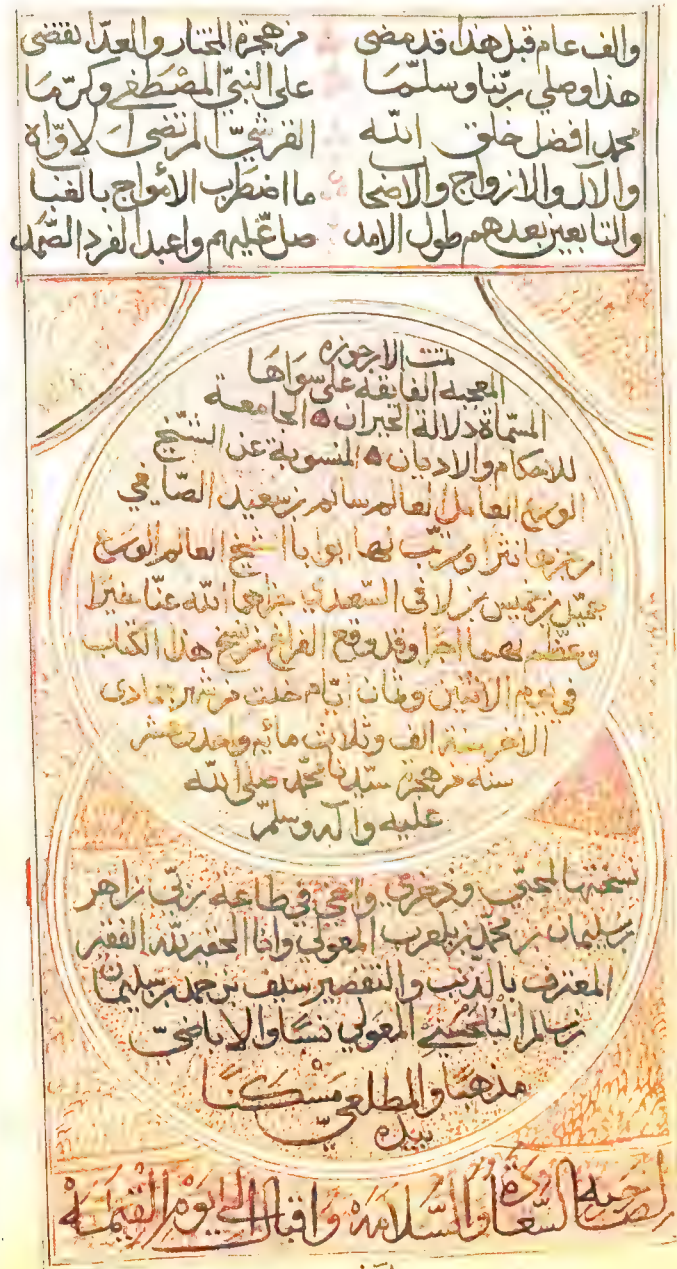 والف عام قبل هذا قد مضى من هجرة المختار والعد انقضى
هذا وصلي ربنا وسلما على النبي المصطفى وكرما
محمد افضل خلق الله القرشي المرتضى الاواه
والال والازواج والاضحا ما اضطرب الامواج بالغبا
والتابعين بعدهم طول الامد صل عليهم واعبد الفرد الصمد
تمت الارجوزه
المعجبه الفايقه على سواها
المسماة دلالة الحيران الجامعة
للاحكام والاديان المنسوبة عن الشيخ
الورع العامل العالم سالم بن سعيد الصايغي
ارجزها نثرا ورتب لها ابوابا الشيخ العالم الورع
بن خميس بن لافي السعدي جزاهما الله عنا خيرا
وعظم لهما اجرا وقد وقع الفراغ من نسخ هذا الكتاب
في يوم الاثنين وثمان ايام خلت من شهر جمادى
الاخر سنة الف وثلاث مائه واحدى عشر
سنه من هجرة سيدنا محمد صلى الله
عليه واله وسلم
نسختها لمحبي وذخري واخي في طاعة ربي زاهر
بن سليمان بن محمد بن بلعرب المعولي وانا الحقير لله الفقير
المعترف بالذنب والتقصير سيف بن حمد بن سليمان
بن سالم البلحسني المعولي نسبا والاباضي
مذهبا والمطلعي مسكنا
بيده
لصاحبه السعادة والسلامة واقبال الى يوم القيمة